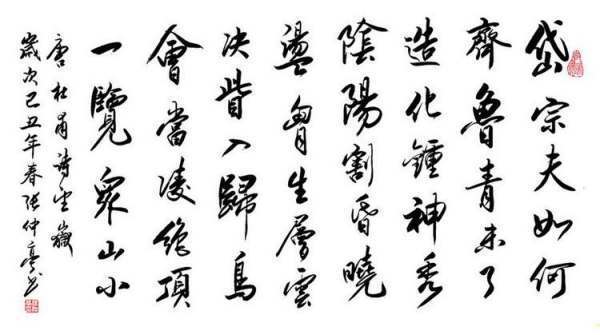 岱宗夫如何
齊魯青未了
造化鍾神秀
陰陽割昏曉
盪胷生層雲
决眥入歸鳥
會當凌絶頂
一覽眾山小
唐杜甫詩望嶽
歲次己丑年春張仲亭书